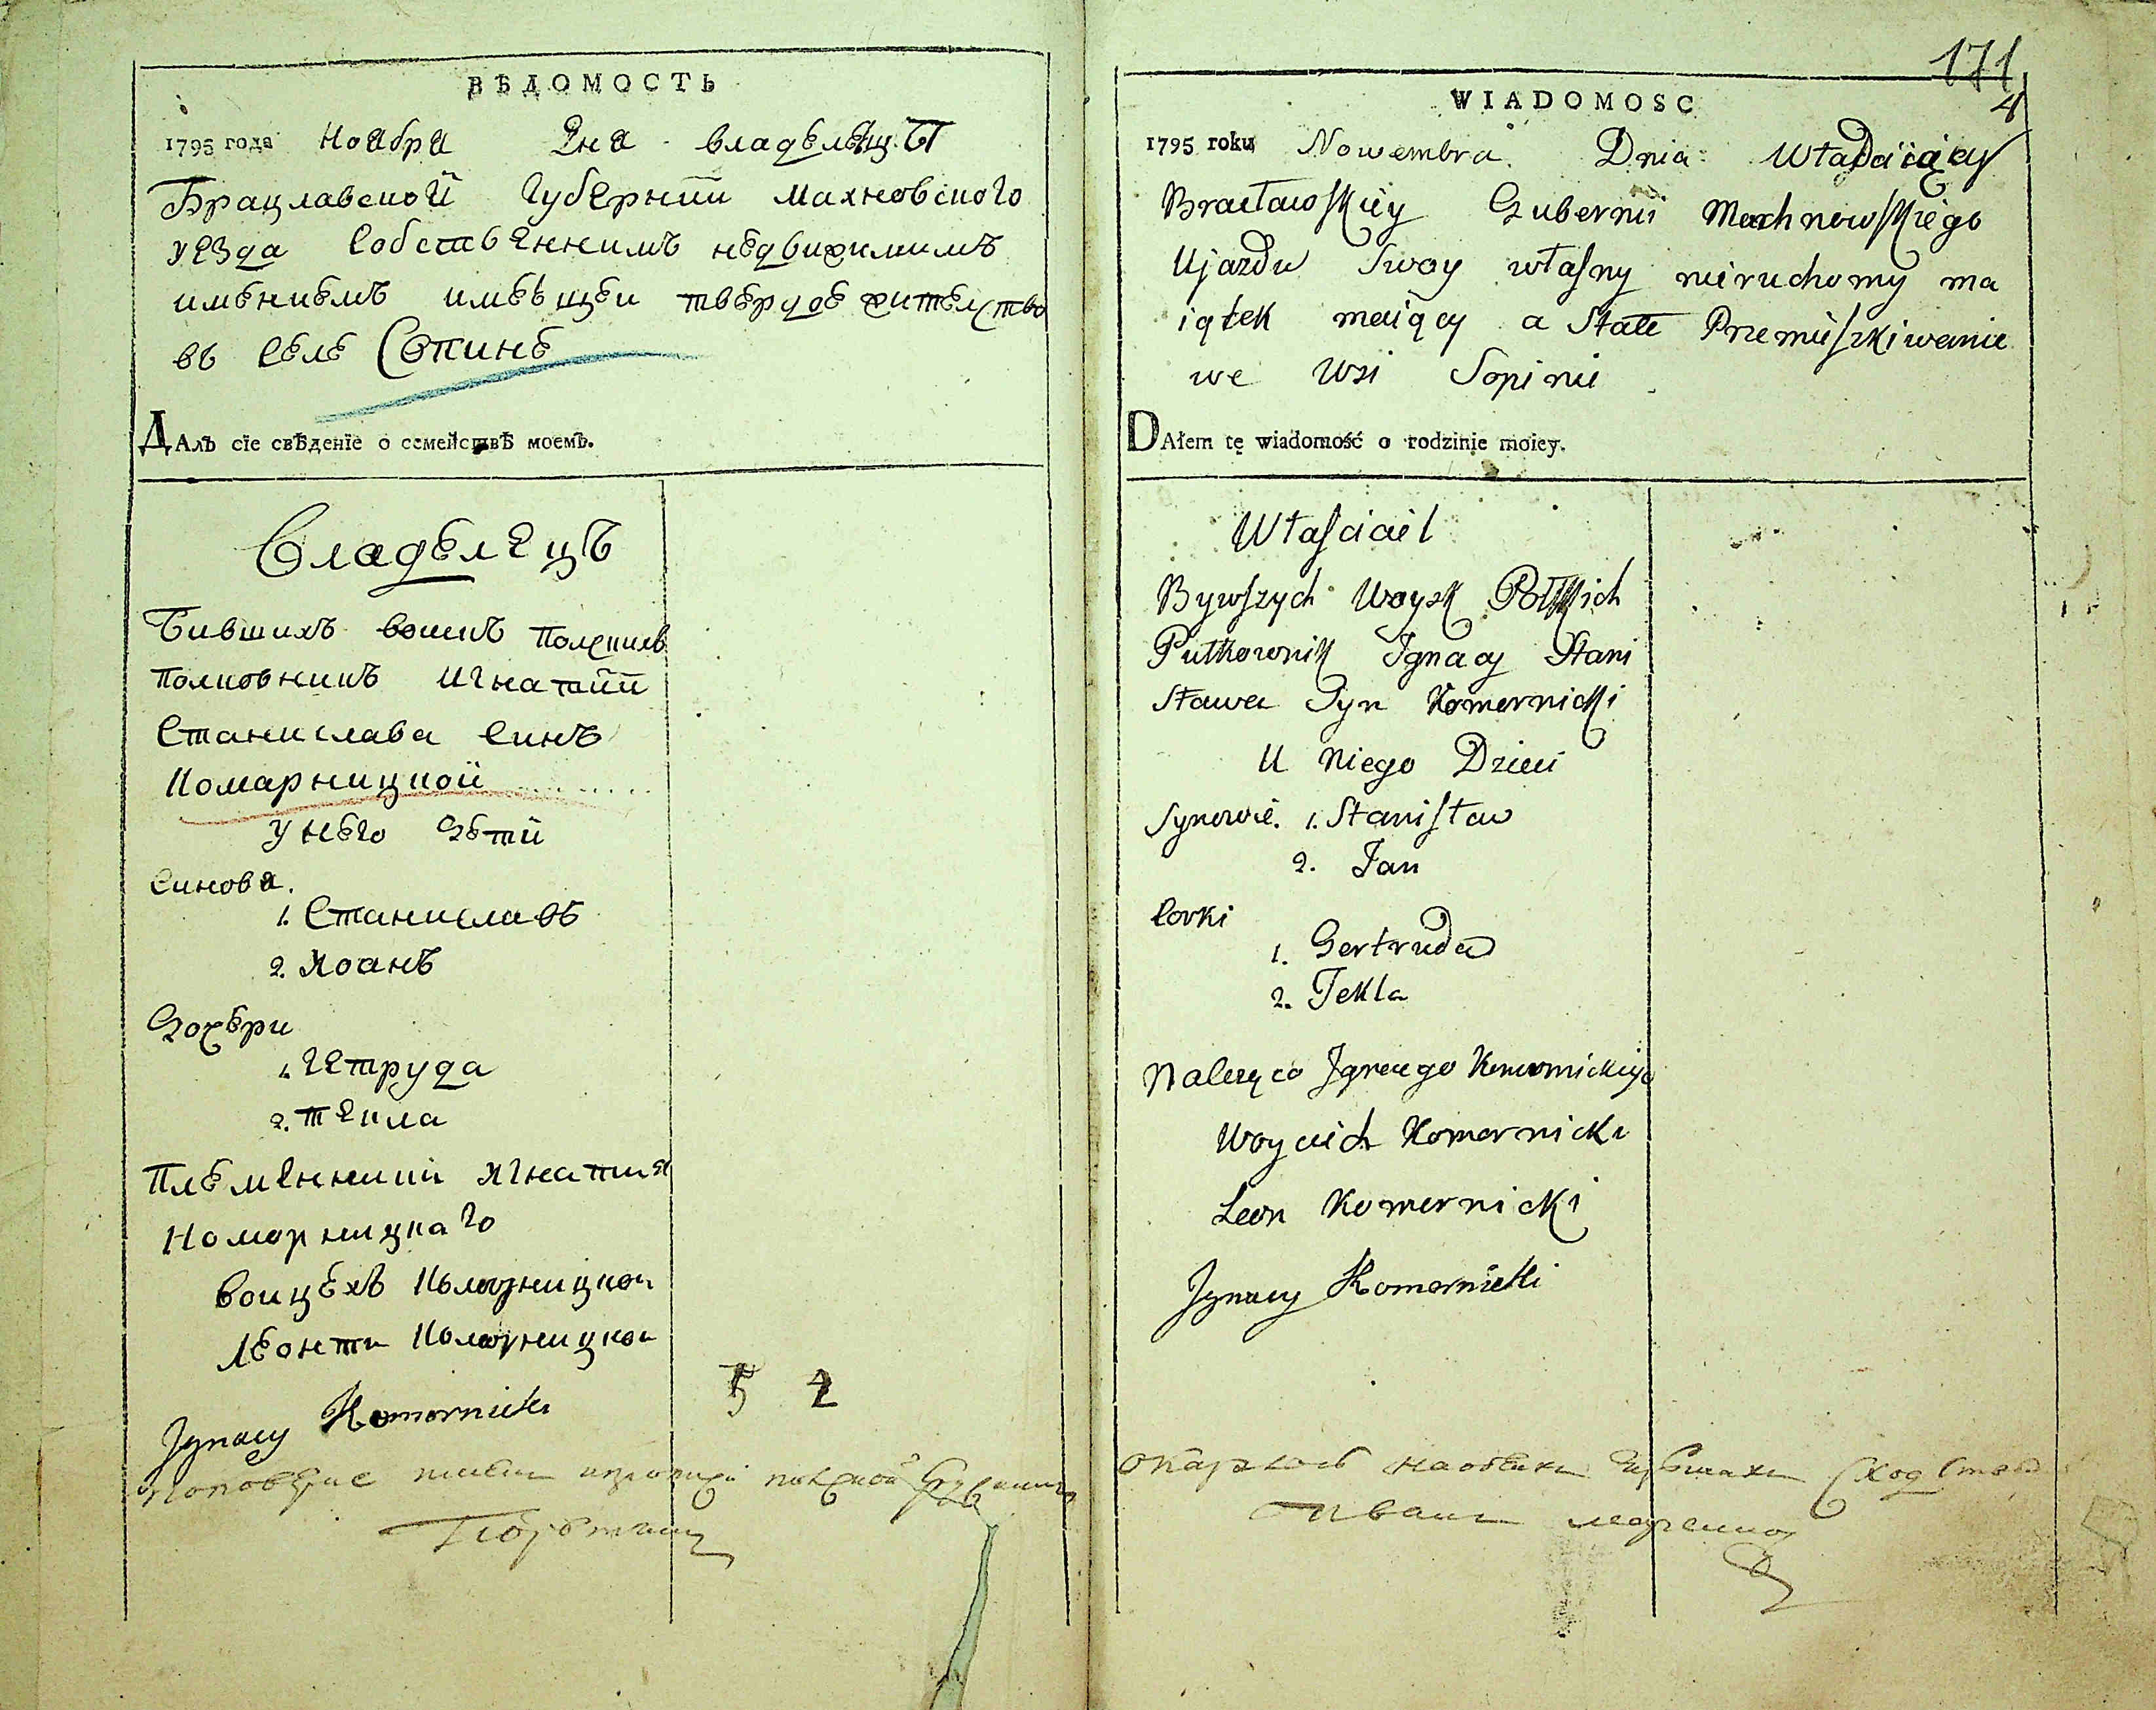 ВѢДОМОСТЬ
1795 года Ноября Дня владѣлецъ
Брацлавской Губернии Махновского
уезда собственнимъ недвижимимъ
имѣниемъ имѣющеи твердое жителство
въ селе Сопинѣ
ДАлъ сїе свѣденїе о семействѣ моемъ.
Владѣлецъ
Бившихъ воискъ Полскихъ
Полковникъ Игнатий
Станислава синъ
Комарницкой
У него дѣти
Синовя.
1. Станиславъ
2. Иоанъ
Дочери
1. Гетруда
2. Текла
Племенники Игнатия
Комарницкаго
Воицехъ Комарницкои
Леонти Комарницкои
Ignacy Komornicki
5 2
171
4
WIADOMOSC
1795 roku Nowembra. Dnia Władaiący
Bracławskiey Gubernii Machnowskiego
Ujazdu Swoy własny nieruchomy ma
iątek maiący a Stałe Przemiszkiwanie
we Wsi Sopinii
DAłem tę wiadomość o rodzinie moiey.
Własciciel
Bywszych Woysk Polskich
Pułkownik Ignacy Stani
sława Syn Komornicki
U Niego Dzieci
Synowie. 1. Stanisław
2. Jan
Corki
1. Gertruda
2. Tekla
Ignacego Komornickiego
Woyciech Komornicki
Leon Komornicki
Ignacy Komornicki
Иванъ